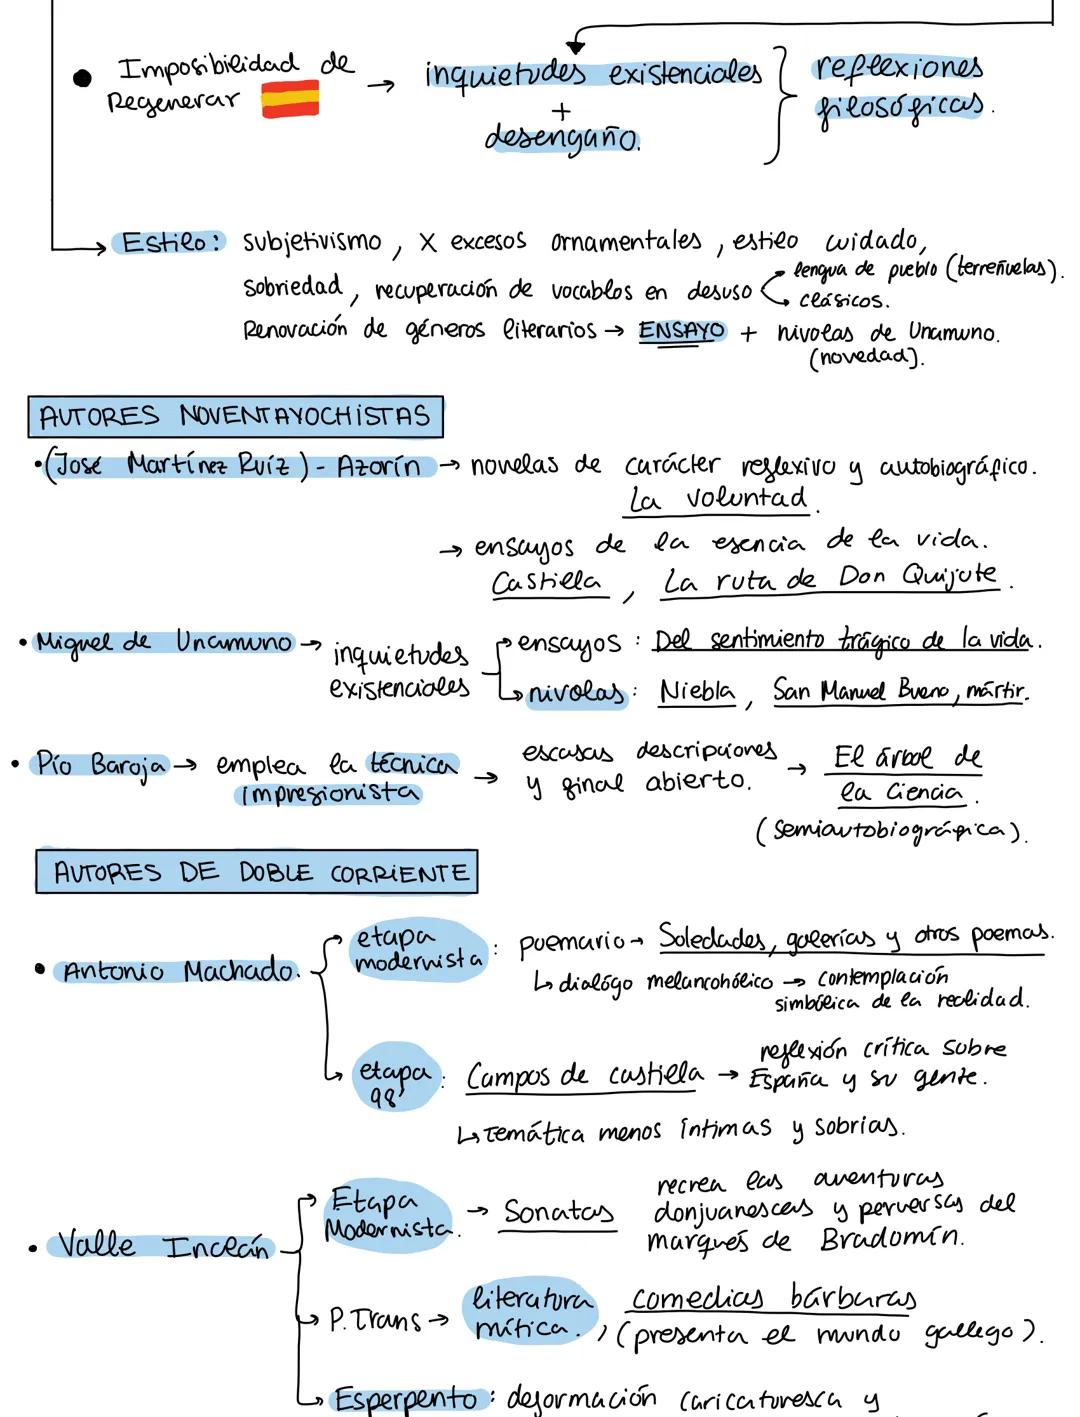 • Imposibilidad de → inquietudes existenciales } reflexiones
Regenerar + filosóficas.
desengaño.
→ Estilo: subjetivismo, X excesos ornamentales, estilo cuidado,
sobriedad, recuperación de vocablos en desuso → lengua de pueblo (terreñuelas).
→ clásicos.
Renovación de géneros literarios → ENSAYO + nivolas de Unamuno.
(novedad).
AUTORES NOVENTAYOCHISTAS
• (José Martínez Ruíz) - Azorín → novelas de carácter reflexivo y autobiográfico.
La voluntad.
→ ensayos de la esencia de la vida.
Castilla, La ruta de Don Quijote.
• Miguel de Unamuno → inquietudes existenciales → ensayos: Del sentimiento trágico de la vida.
→ nivolas: Niebla, San Manuel Bueno, mártir.
• Pío Baroja → emplea la técnica impresionista → escasas descripciones y final abierto. → El árbol de la Ciencia.
(semiautobiográfica).
AUTORES DE DOBLE CORRIENTE
• Antonio Machado. → etapa modernista: poemario → Soledades, galerías y otros poemas.
↳ dialógo melancohólico → contemplación simbólica de la realidad.
→ etapa 98': Campos de castilla → reflexión crítica sobre España y su gente.
↳ temática menos íntimas y sobrias.
• Valle Inclán → Etapa Modernista. → Sonatas recrea las aventuras donjuanescas y perversas del marqués de Bradomín.
→ P. Trans → literatura mítica., comedias bárbaras
(presenta el mundo gallego).
→ Esperpento: deformación caricaturesca y